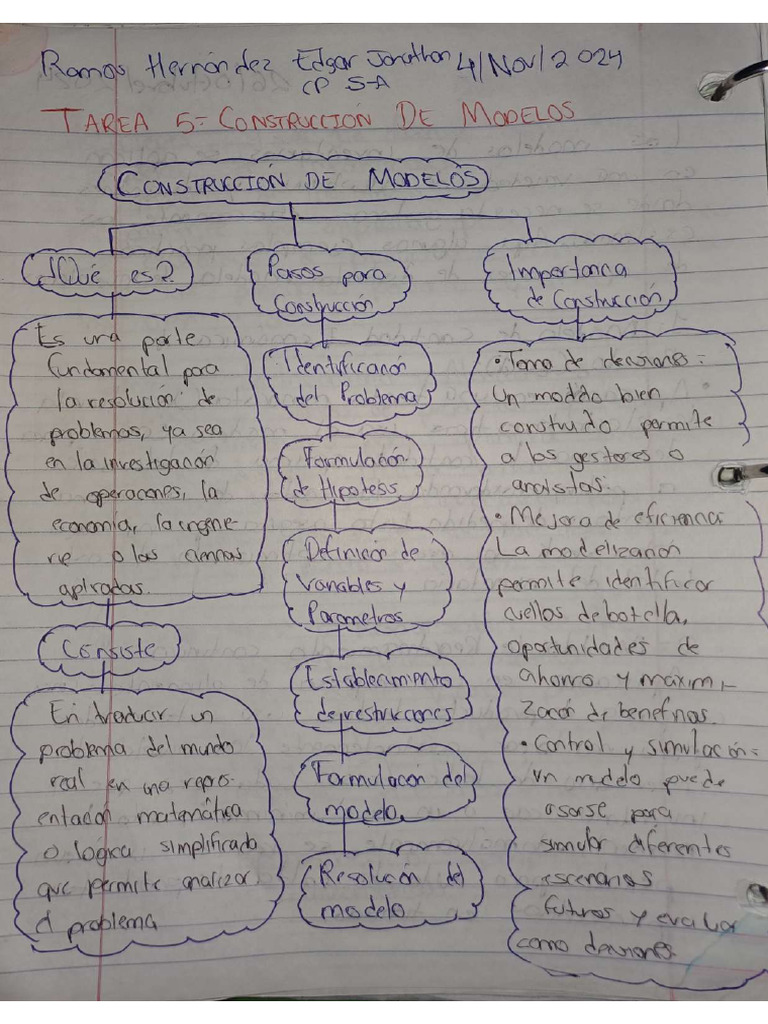 Ramos Hernández Edgar Jonathan 4/Nov/2024
CP 5-A
TAREA 5- CONSTRUCCIÓN DE MODELOS
CONSTRUCCIÓN DE MODELOS
¿Qué es?
Es una parte
fundamental para
la resolución de
problemas, ya sea
en la investigación
de operaciones, la
economía, la ingenie-
rie o las ciencias
aplicadas.
Consiste
En traducir un
problema del mundo
real en una repres-
entación matemática
o logica simplificado
que permite analizar
el problema
Pasos para
Construcción
Identificación
del Problema
Formulación
de Hipotesis
Definición de
Variables y
Parametros
Establecimiento
de restricciones
Formulación del
modelo
Resolución del
modelo
Importancia
de Construcción
• Toma de decisiones =
Un modelo bien
construido permite
a los gestores o
analistas.
• Mejora de eficiencia
La modelización
permite identificar
cuellos de botella,
oportunidades de
ahorro y maximi-
zación de beneficios
• Control y simulación =
Un modelo puede
usarse para
simular diferentes
escenarios
futuros y evaluar
como decisiones.